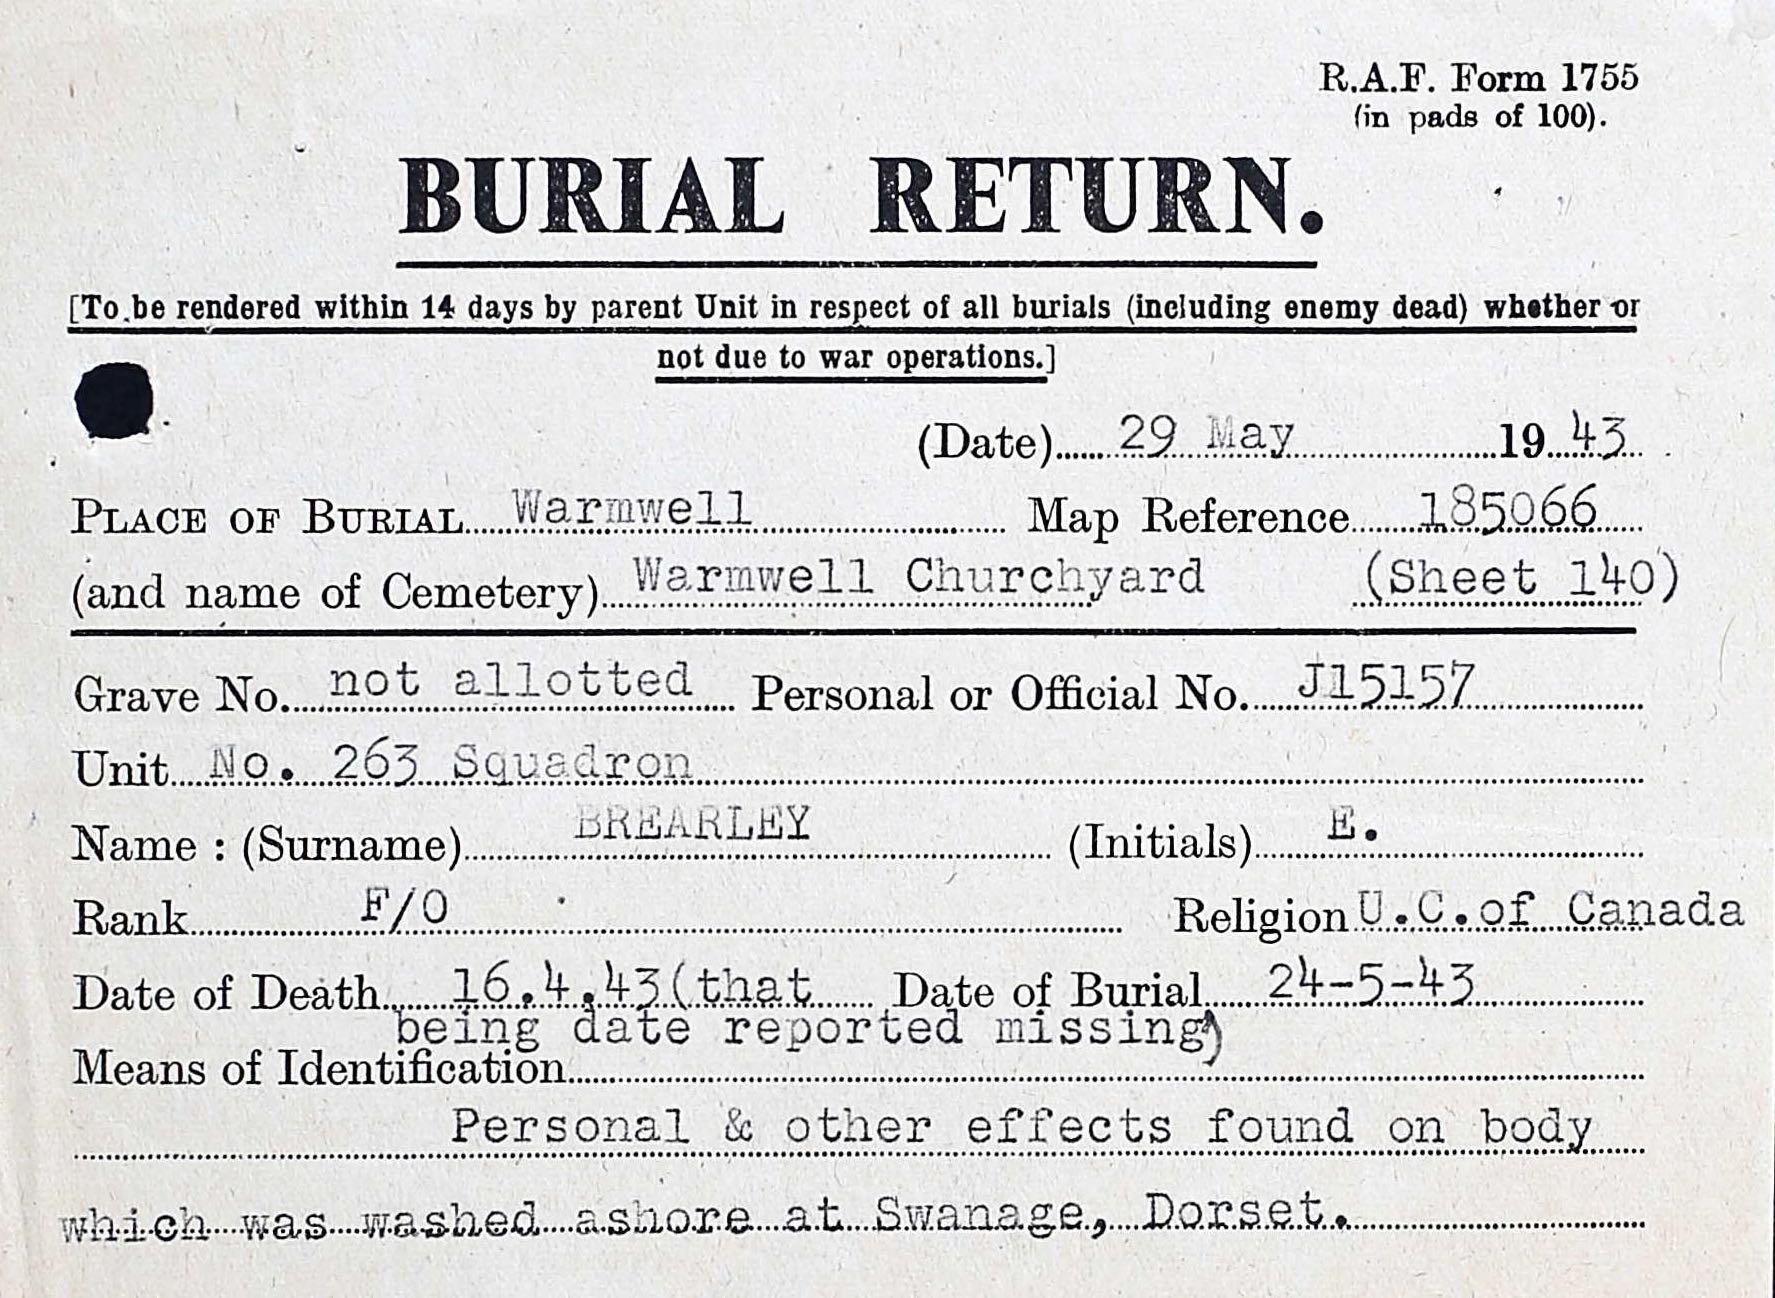 R.A.F. Form 1755
(in pads of 100).
BURIAL RETURN.
[To be rendered within 14 days by parent Unit in respect of all burials (including enemy dead) whether or
not due to war operations.]
(Date) 29 May 19 43
PLACE OF BURIAL Warmwell Map Reference 185066
(and name of Cemetery) Warmwell Churchyard (Sheet 140)
Grave No. not allotted Personal or Official No. J15157
Unit No. 263 Squadron
Name : (Surname) BREARLEY (Initials) E.
Rank F/O Religion U.C.of Canada
Date of Death 16.4.43(that Date of Burial 24-5-43
being date reported missing)
Means of Identification
Personal & other effects found on body
which was washed ashore at Swanage, Dorset.